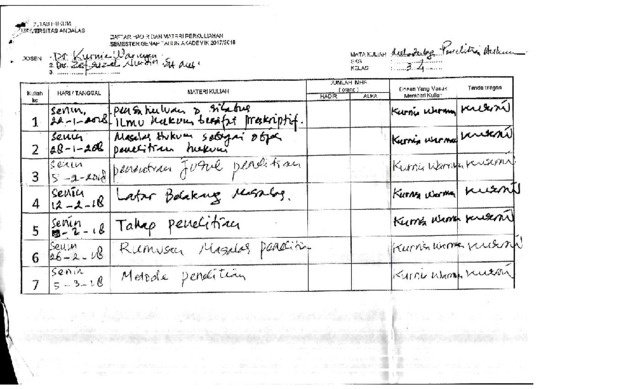 FAKULTAS HUKUM
UNIVERSITAS ANDALAS
DAFTAR HADIR DAN MATERI PERKULIAHAN
SEMESTER GENAP TAHUN AKADEMIK 2017/2018
DOSEN
1. Dr. Kurnia Warman
2. Dr. SH. MH.
3.
MATA KULIAH Metodologi Penelitian Hukum
SKS
KELAS 3.4
Kuliah ke
HARI / TANGGAL
MATERI KULIAH
JUMLAH MHS (orang)
HADIR
ALPA
Dosen Yang Masuk Memberi Kuliah
Tanda tangan
1 Senin, 22-1-2018 pendahuluan & silabus
ILmu Hukum bersifat preskriptif. Kurnia Warman
2 Senin 28-1-2018 Masalah Hukum sebagai objek
penelitian hukum Kurnia Warman
3 Senin 5-2-2018 penentuan judul penelitian Kurnia Warman
4 Senin 12-2-18 Latar Belakang Masalah. Kurnia Warman
5 Senin -2-18 Tahap penelitian Kurnia Warman
6 Senin 26-2-18 Rumusan Masalah penelitian Kurnia Warman
7 Senin 5-3-18 Metode penelitian Kurnia Warman